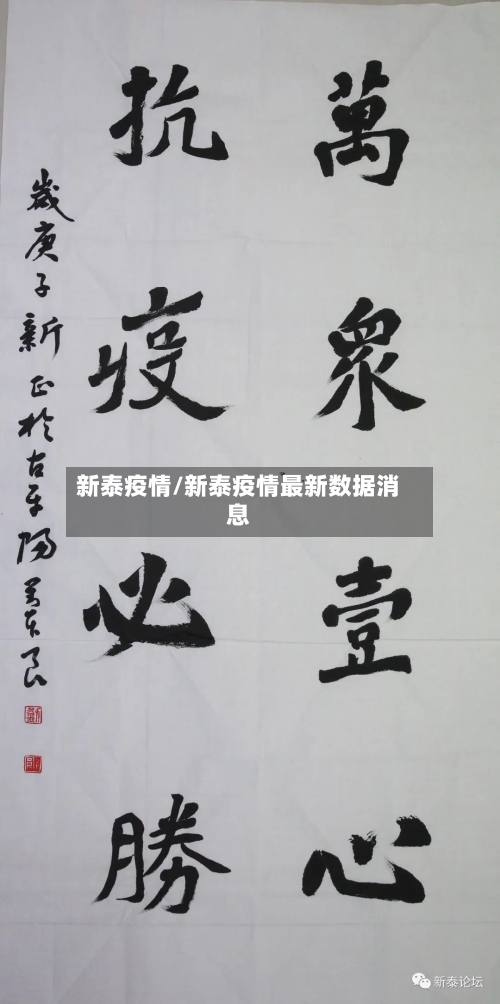 萬衆壹心
抗疫必勝
歲庚子新正於古平陽
新泰疫情/新泰疫情最新数据消
息
新泰论坛